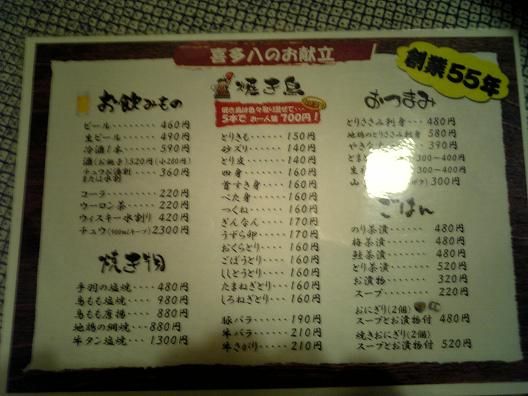 喜多八のお献立
創業55年
お飲みもの
ビール 460円
生ビール 490円
冷酒1本 590円
酒(お燗き)520円(小280円)
チュウお湯割
または水割 360円
コーラ 220円
ウーロン茶 220円
ウィスキー水割り 420円
チュウ(900mlキープ) 2300円
焼き物
手羽の塩焼 480円
鳥もも塩焼 980円
鳥もも唐揚 880円
地鶏の網焼 880円
牛タン塩焼 1300円
焼き鳥
焼き鳥は色々取り混ぜて…
5本で お一人様 700円!
とりきも 150円
砂ズリ 140円
とり皮 140円
四身 160円
首すき身 160円
べた身 160円
つくね 160円
ぎんなん 170円
うずら卵 170円
おくらとり 160円
ごぼうとり 160円
ししとうとり 160円
たまねぎとり 160円
しろねぎとり 160円
豚バラ 190円
牛バラ 210円
牛さがり 210円
おつまみ
とりささみ刺身 480円
地鶏のとりささみ刺身 580円
やきな 390円
とま 300〜400円
生 300〜400円
山 300円
ごはん
のり茶漬 480円
梅茶漬 480円
鮭茶漬 480円
とり茶漬 520円
お漬物 320円
スープ 220円
おにぎり(2個)
スープとお漬物付 480円
焼きおにぎり(2個)
スープとお漬物付 520円